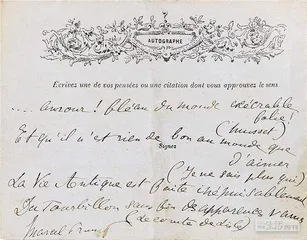 AUTOGRAPHE
Écrivez une de vos pensées ou une citation dont vous approuvez le sens.
.... amour ! fléau du monde exécrable
folie !
(Musset)
Et qu'il n'est rien de bon au monde que
Signez
D'aimer
(Je ne sais plus qui)
La Vie Antique est faite inépuisablement
Du tourbillon sans fin des apparences vaines
(Leconte de Lisle)
Marcel Proust